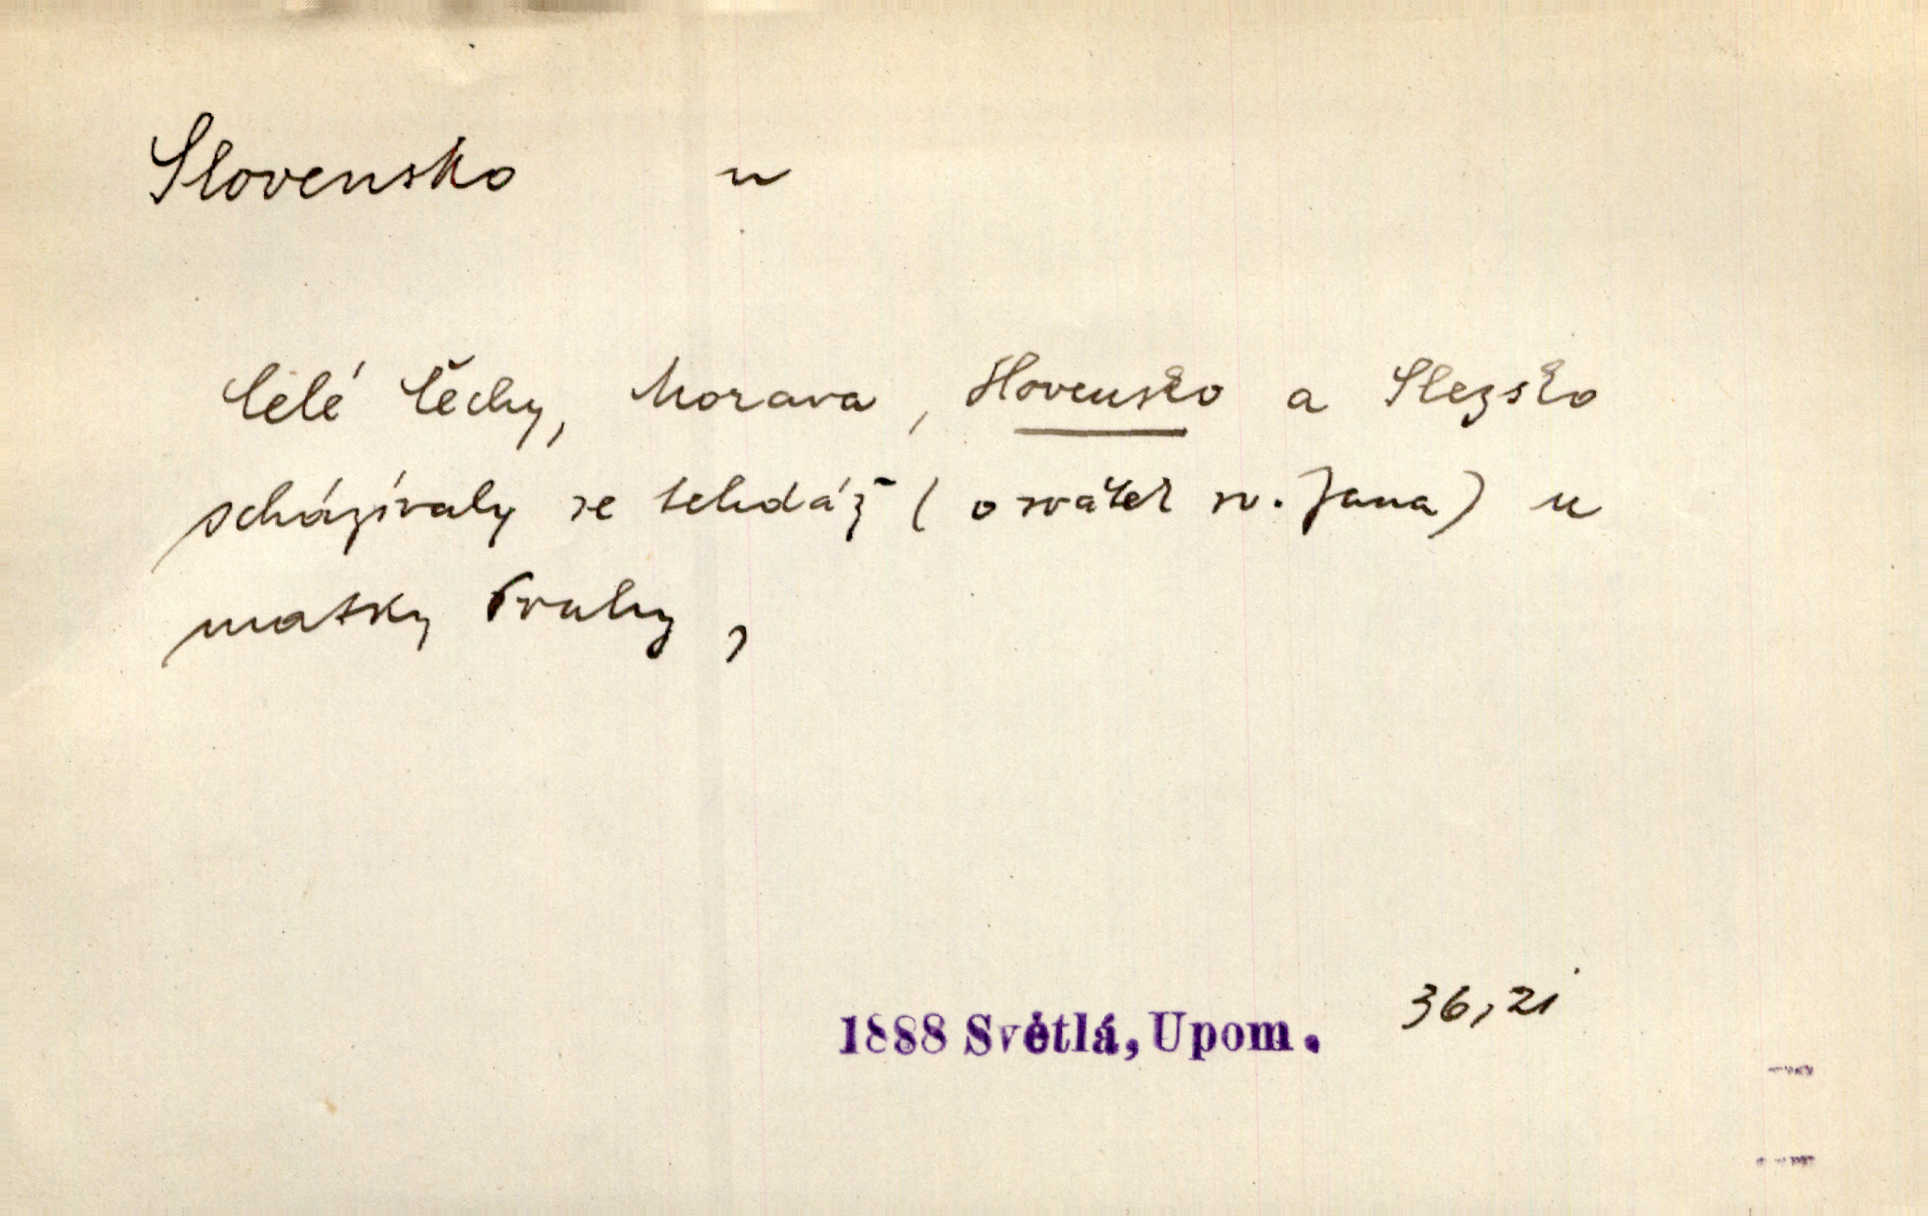 Slovensko n
Celé Čechy, Morava, Slovensko a Slezsko
scházívaly se tehdáž (o svátek sv. Jana) u
matky Prahy,
1888 Světlá, Upom. 36,21